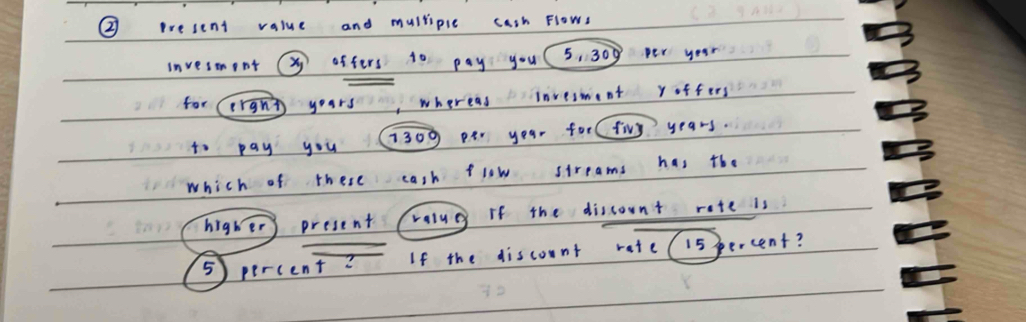 ② Present value and multiple cash Flows
Invesment X offers to pay you 5,300 per year
for eight years, whereas Invesment Y offers
to pay you 7300 per year for five years.
Which of these cash flow streams has the
higher present value If the discount rate is
5 percent? If the discount rate 15 percent?